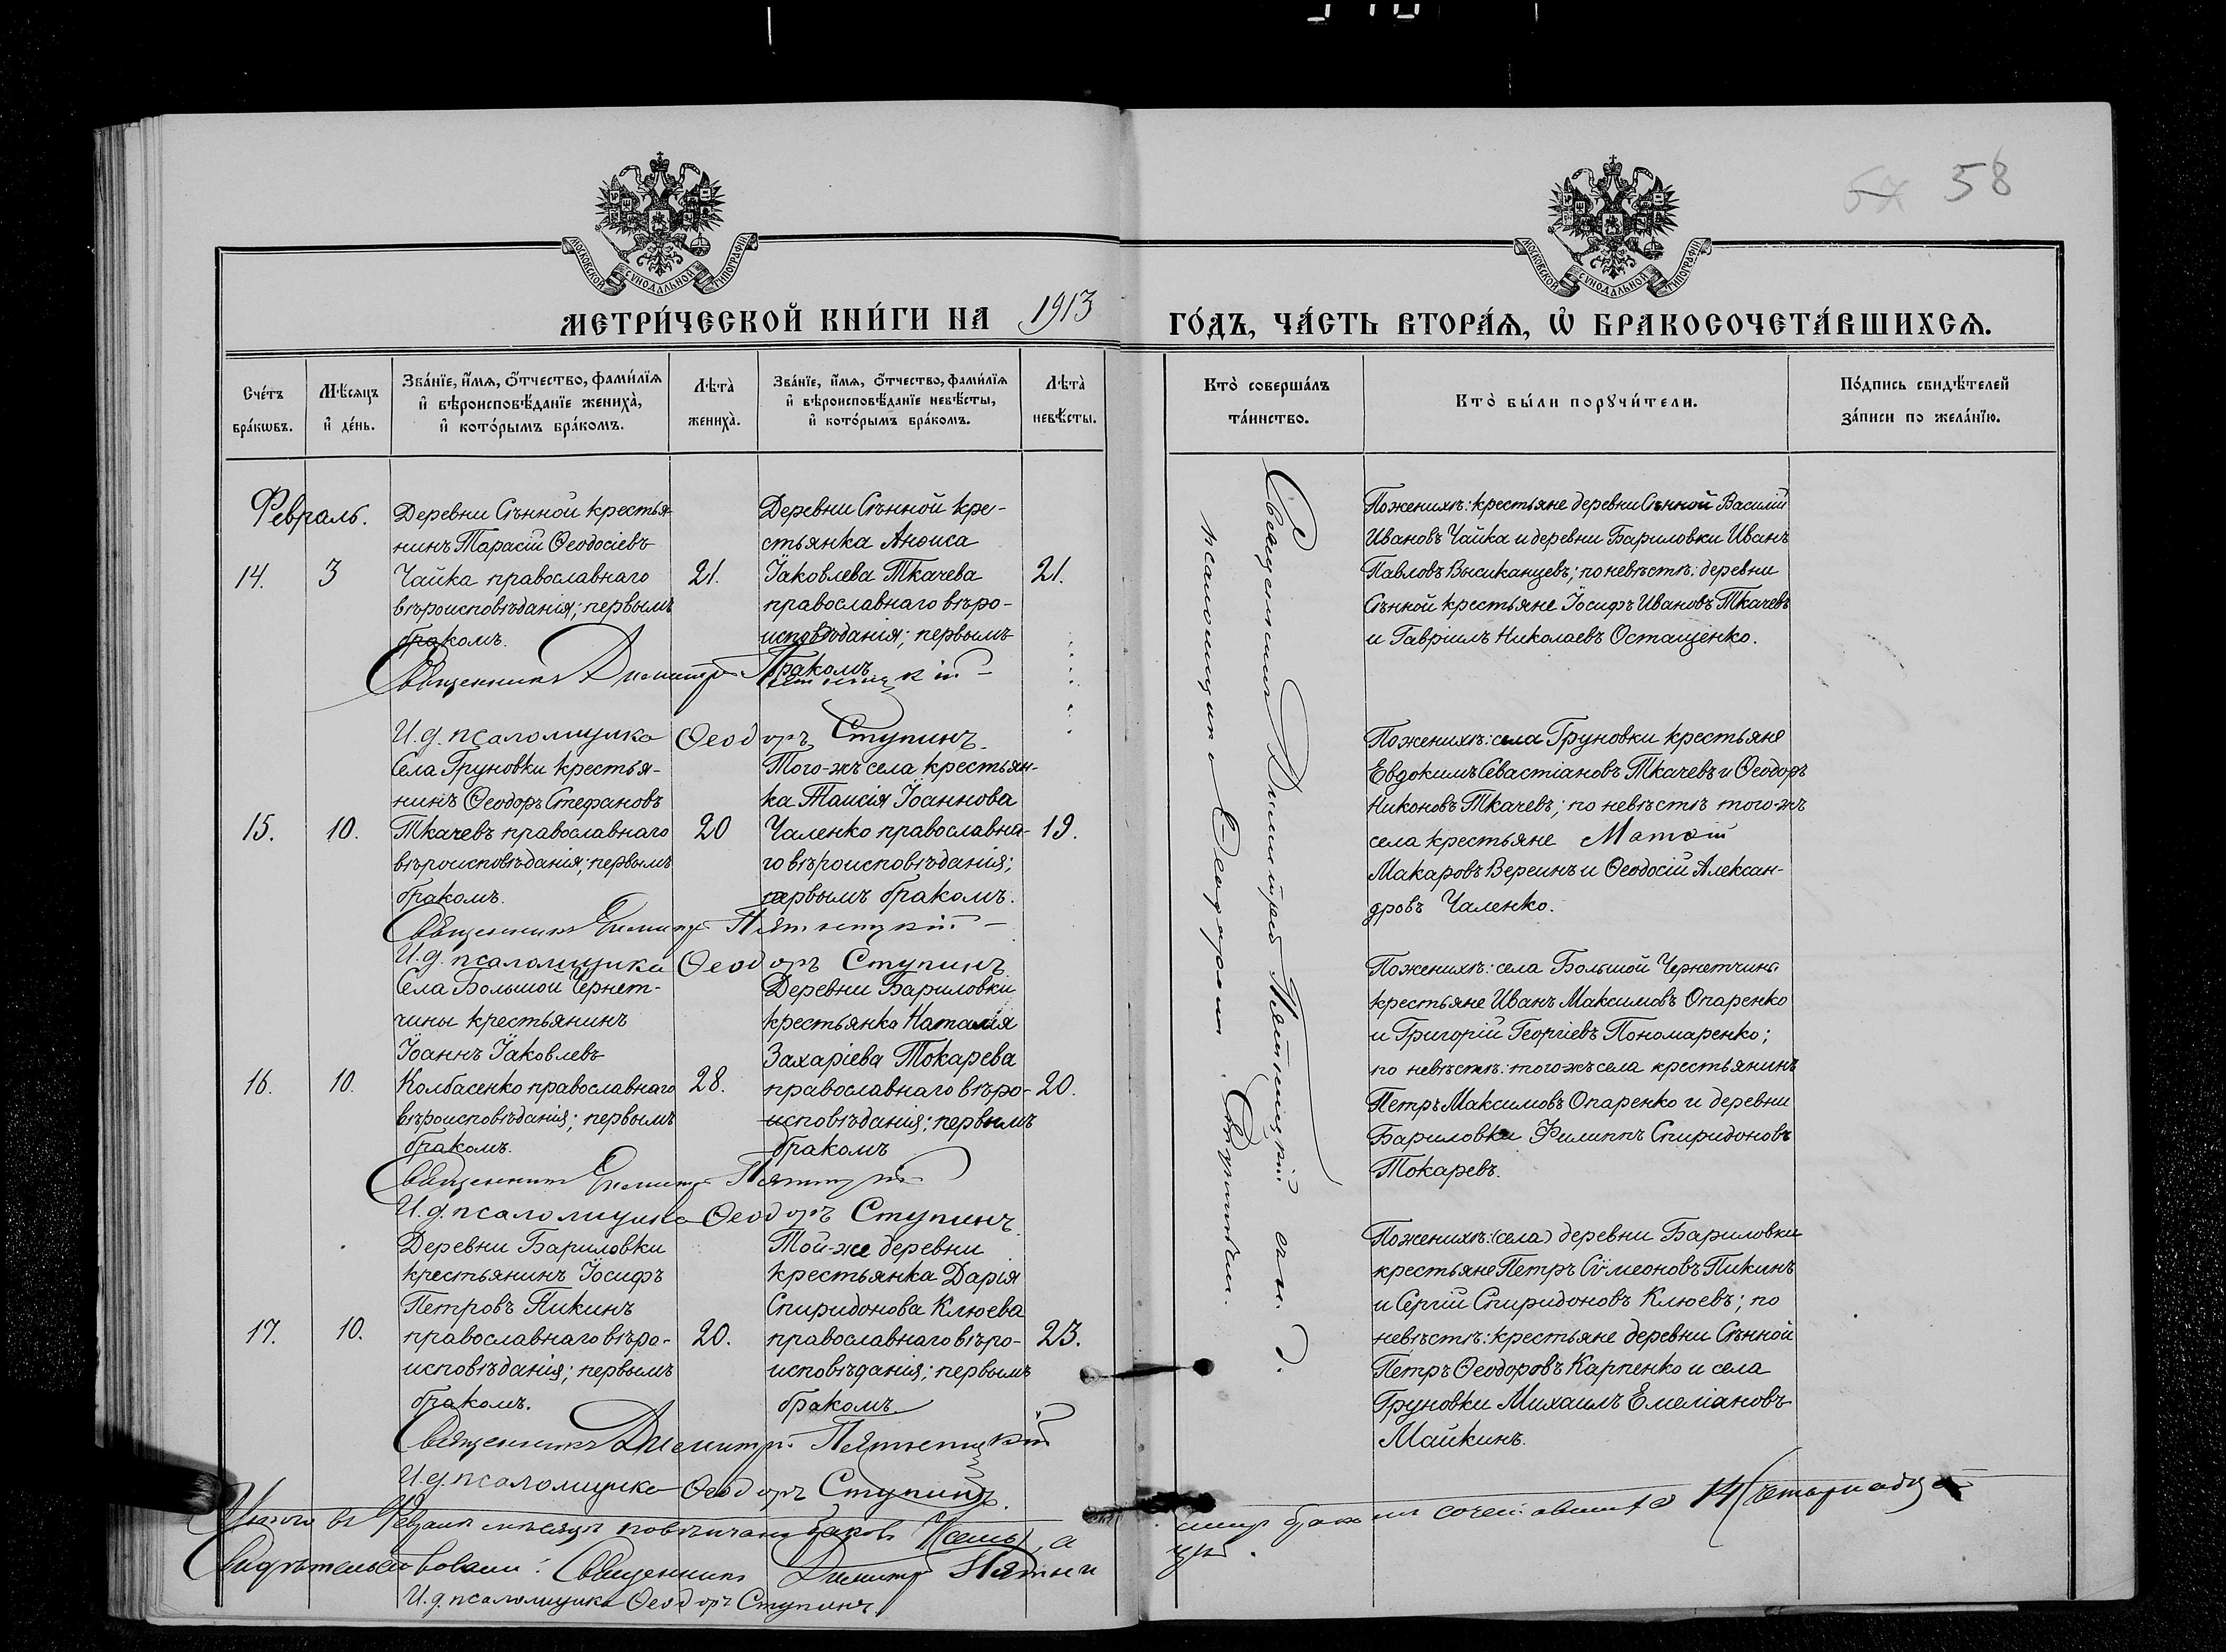 58
МОСКОВСКОЙ СУНОДАЛЬНОЙ ТИПОГРАФІИ
МОСКОВСКОЙ СУНОДАЛЬНОЙ ТИПОГРАФІИ
МЕТРИ́ЧЕСКОЙ КНИ́ГИ НА 1913 ГО́ДЪ, ЧА́СТЬ ВТОРА́Ѧ, Ѡ҆ БРАКОСОЧЕТА́ВШИХСѦ.
Сче́тъ
бра́кѡвъ.
Мѣ́сяцъ
и҆ де́нь.
Зва́нїе, и҆́мѧ, ѻ҆́тчество, фами́лїѧ
и҆ вѣроисповѣ́данїе жениха̀,
и҆ кото́рымъ бра́комъ.
Лѣта̀
жениха̀.
Зва́нїе, и҆́мѧ, ѻ҆́тчество, фами́лїѧ
и҆ вѣроисповѣ́данїе невѣ́сты,
и҆ кото́рымъ бра́комъ.
Лѣта̀
невѣ́сты.
Кто̀ соверша́лъ
та́инство.
Кто̀ бы́ли порꙋчи́тели.
По́дпись свидѣ́телей
за́писи по жела́нїю.
Февраль.
14.
3
Деревни Сѣнной крестья-
нинъ Тарасій Ѳеодосіевъ
Чайка православнаго
вѣроисповѣданія; первымъ
бракомъ.
21.
Деревни Сѣнной кре-
стьянка Анѳиса
Іаковлева Ткачева
православнаго вѣро-
исповѣданія; первымъ
бракомъ
21.
Священникъ Димитрій Пятницкій
И.д. псаломщика Ѳеодоръ Ступинъ.
Поженихѣ: крестьяне деревни Сѣнной Василій
Ивановъ Чайка и деревни Бариловки Иванъ
Павловъ Высиканцевъ; по невѣстѣ: деревни
Сѣнной крестьяне Іосифъ Ивановъ Ткачевъ
и Гавріилъ Николаевъ Остащенко.
15.
10.
Села Груновки крестья-
нинъ Ѳеодоръ Стефановъ
Ткачевъ православнаго
вѣроисповѣданія; первымъ
бракомъ.
20
Того-жъ села крестьян-
ка Таисія Іоаннова
Чаленко православна-
го вѣроисповѣданія;
первымъ бракомъ.
19.
Священникъ Димитр Пятницкій
И.д. псаломщика Ѳеодоръ Ступинъ
Поженихѣ: села Груновки крестьяне
Евдокимъ Севастіановъ Ткачевъ и Ѳеодоръ
Никоновъ Ткачевъ; по невѣстѣ того-жъ
села крестьяне Матѳій
Макаровъ Вереинъ и Ѳеодосій Алексан-
дровъ Чаленко.
16.
10.
Села Большой Чернет-
чины крестьянинъ
Іоаннъ Іаковлевъ
Колбасенко православнаго
вѣроисповѣданія; первымъ
бракомъ.
28.
Деревни Бариловки
крестьянка Наталія
Захаріева Токарева
православнаго вѣро-
исповѣданія; первымъ
бракомъ
20.
Священникъ Димитр Пятницкій
И.д. псаломщика Ѳеодоръ Ступинъ
Поженихѣ: села Большой Чернетчины
крестьяне Иванъ Максимовъ Опаренко
и Григорій Георгіевъ Пономаренко;
по невѣстѣ: того жъ села крестьянинъ
Петръ Максимовъ Опаренко и деревни
Бариловки Филиппъ Спиридоновъ
Токаревъ.
17.
10.
Деревни Бариловки
крестьянинъ Іосифъ
Петровъ Пикинъ
православнаго вѣро-
исповѣданія; первымъ
бракомъ.
20.
Той-же деревни
крестьянка Дарія
Спиридонова Клюева
православнаго вѣро-
исповѣданія; первымъ
бракомъ.
23.
Священникъ Димитрій Пятницкій
И.д. псаломщика Ѳеодоръ Ступинъ.
Поженихѣ: (села) деревни Бариловки
крестьяне Петръ Сѵмеоновъ Пикинъ
и Сергій Спиридоновъ Клюевъ; по
невѣстѣ: крестьяне деревни Сѣнной
Петръ Ѳеодоровъ Карпенко и села
Груновки Михаилъ Емеліановъ
Майкинъ.
Священникъ Димитрій Пятницкій съ и. д.
псаломщика Ѳеодоромъ Ступинымъ.
Итого въ Февралѣ мѣсяцѣ повѣнчано браковъ 7 (семь), а
Свидѣтельствовали: Священникъ Димитр Пятни
И.д. псаломщика Ѳеодоръ Ступинъ